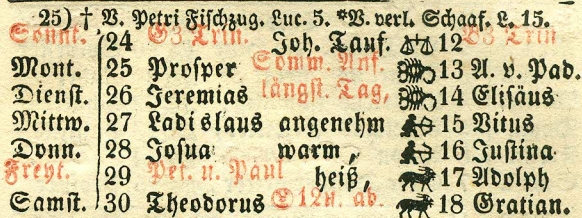 25) † V. Petri Fischzug. Luc. 5. *V. verl. Schaaf. L. 15.
Sonnt. 24 G3 Trin. Joh. Tauf. 12 B3 Trin
Mont. 25 Prosper Somm. Anf. 13 A. v. Pad.
Dienst. 26 Jeremias längst. Tag, 14 Elisäus
Mittw. 27 Ladislaus angenehm 15 Vitus
Donn. 28 Josua warm, 16 Justina
Freyt. 29 Pet. u. Paul heiß, 17 Adolph
Samst. 30 Theodorus 12u. ab. 18 Gratian.